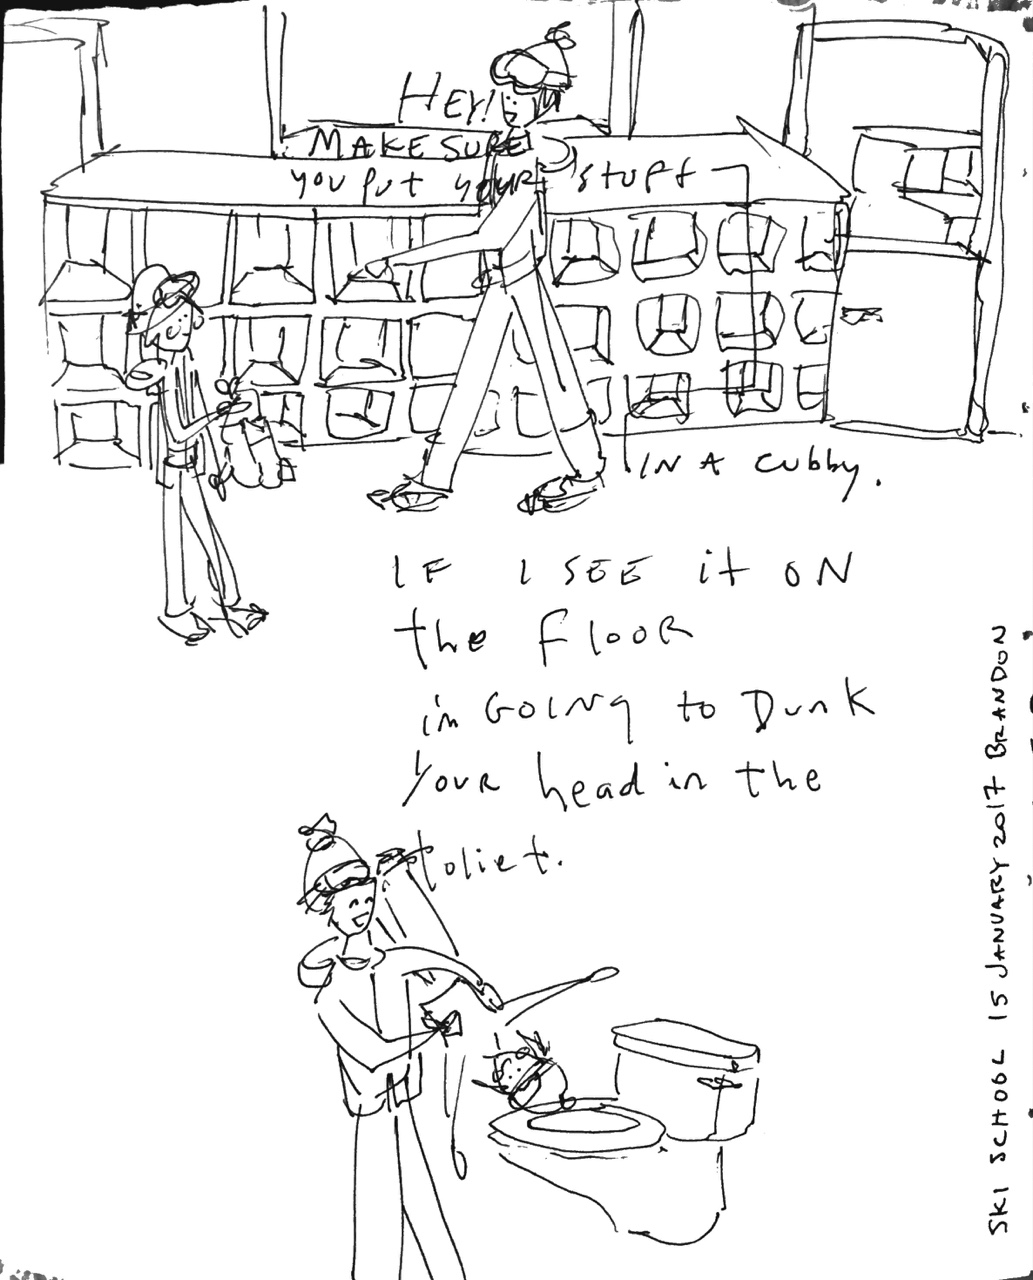 HEY!
MAKE SURE
you put youR stuff
IN A cubby.
IF I SEE it ON
the flooR
i'm GOING to Dunk
youR head in the
toliet.
SKI SCHOOL 15 JANUARY 2017 BRANDON